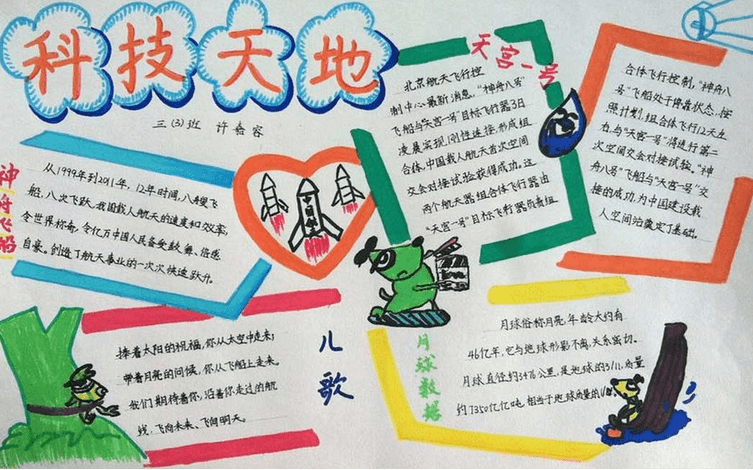 科技天地
三(3)班 许睿容
神舟飞船
从1999年到2011年，12年时间，八艘飞
船，八次飞跃，我国载人航天的速度和效率，
令世界称奇，令亿万中国人民备受鼓舞、倍感
自豪。创造了航天事业的一次次快速跃升。
中国航天
天宫一号
北京航天飞行控
制中心最新消息，"神舟八号"
飞船与"天宫一号"目标飞行器3日
凌晨实现刚性连接，形成组
合体，中国载人航天首次空间
交会对接试验获得成功。这
两个航天器组合体飞行器由
"天宫一号"目标飞行器负责组
合体飞行控制，"神舟八
号"飞船处于停靠状态，按
照计划，组合体飞行12天左
右，与"天宫一号"将进行第二
次空间交会对接试验。"神
舟八号"飞船与"天宫一号"交
接的成功，为中国建设载
人空间站奠定了基础。
儿歌
捧着太阳的祝福，你从太空中走来；
带着月亮的问候，你从飞船上走来。
我们期待着你，沿着你走过的航
线，飞向未来、飞向明天。
月球数据
月球俗称月亮，年龄大约有
46亿年，它与地球形影不离，关系密切。
月球直径约3476公里，是地球的3/11，质量
约7350亿亿吨，相当于地球质量的1/81